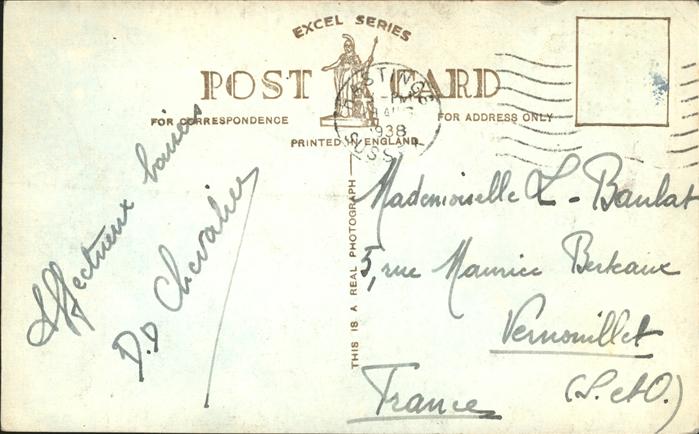 EXCEL SERIES
POST CARD
FOR CORRESPONDENCE
FOR ADDRESS ONLY
PRINTED IN ENGLAND
HASTINGS
1938
SUSSEX
THIS IS A REAL PHOTOGRAPH
Affectueux baisers
D.D Chevalier
Mademoiselle L - Baulat
5, rue Maurice Berteaux
Vernouillet
(S. et O.)
France